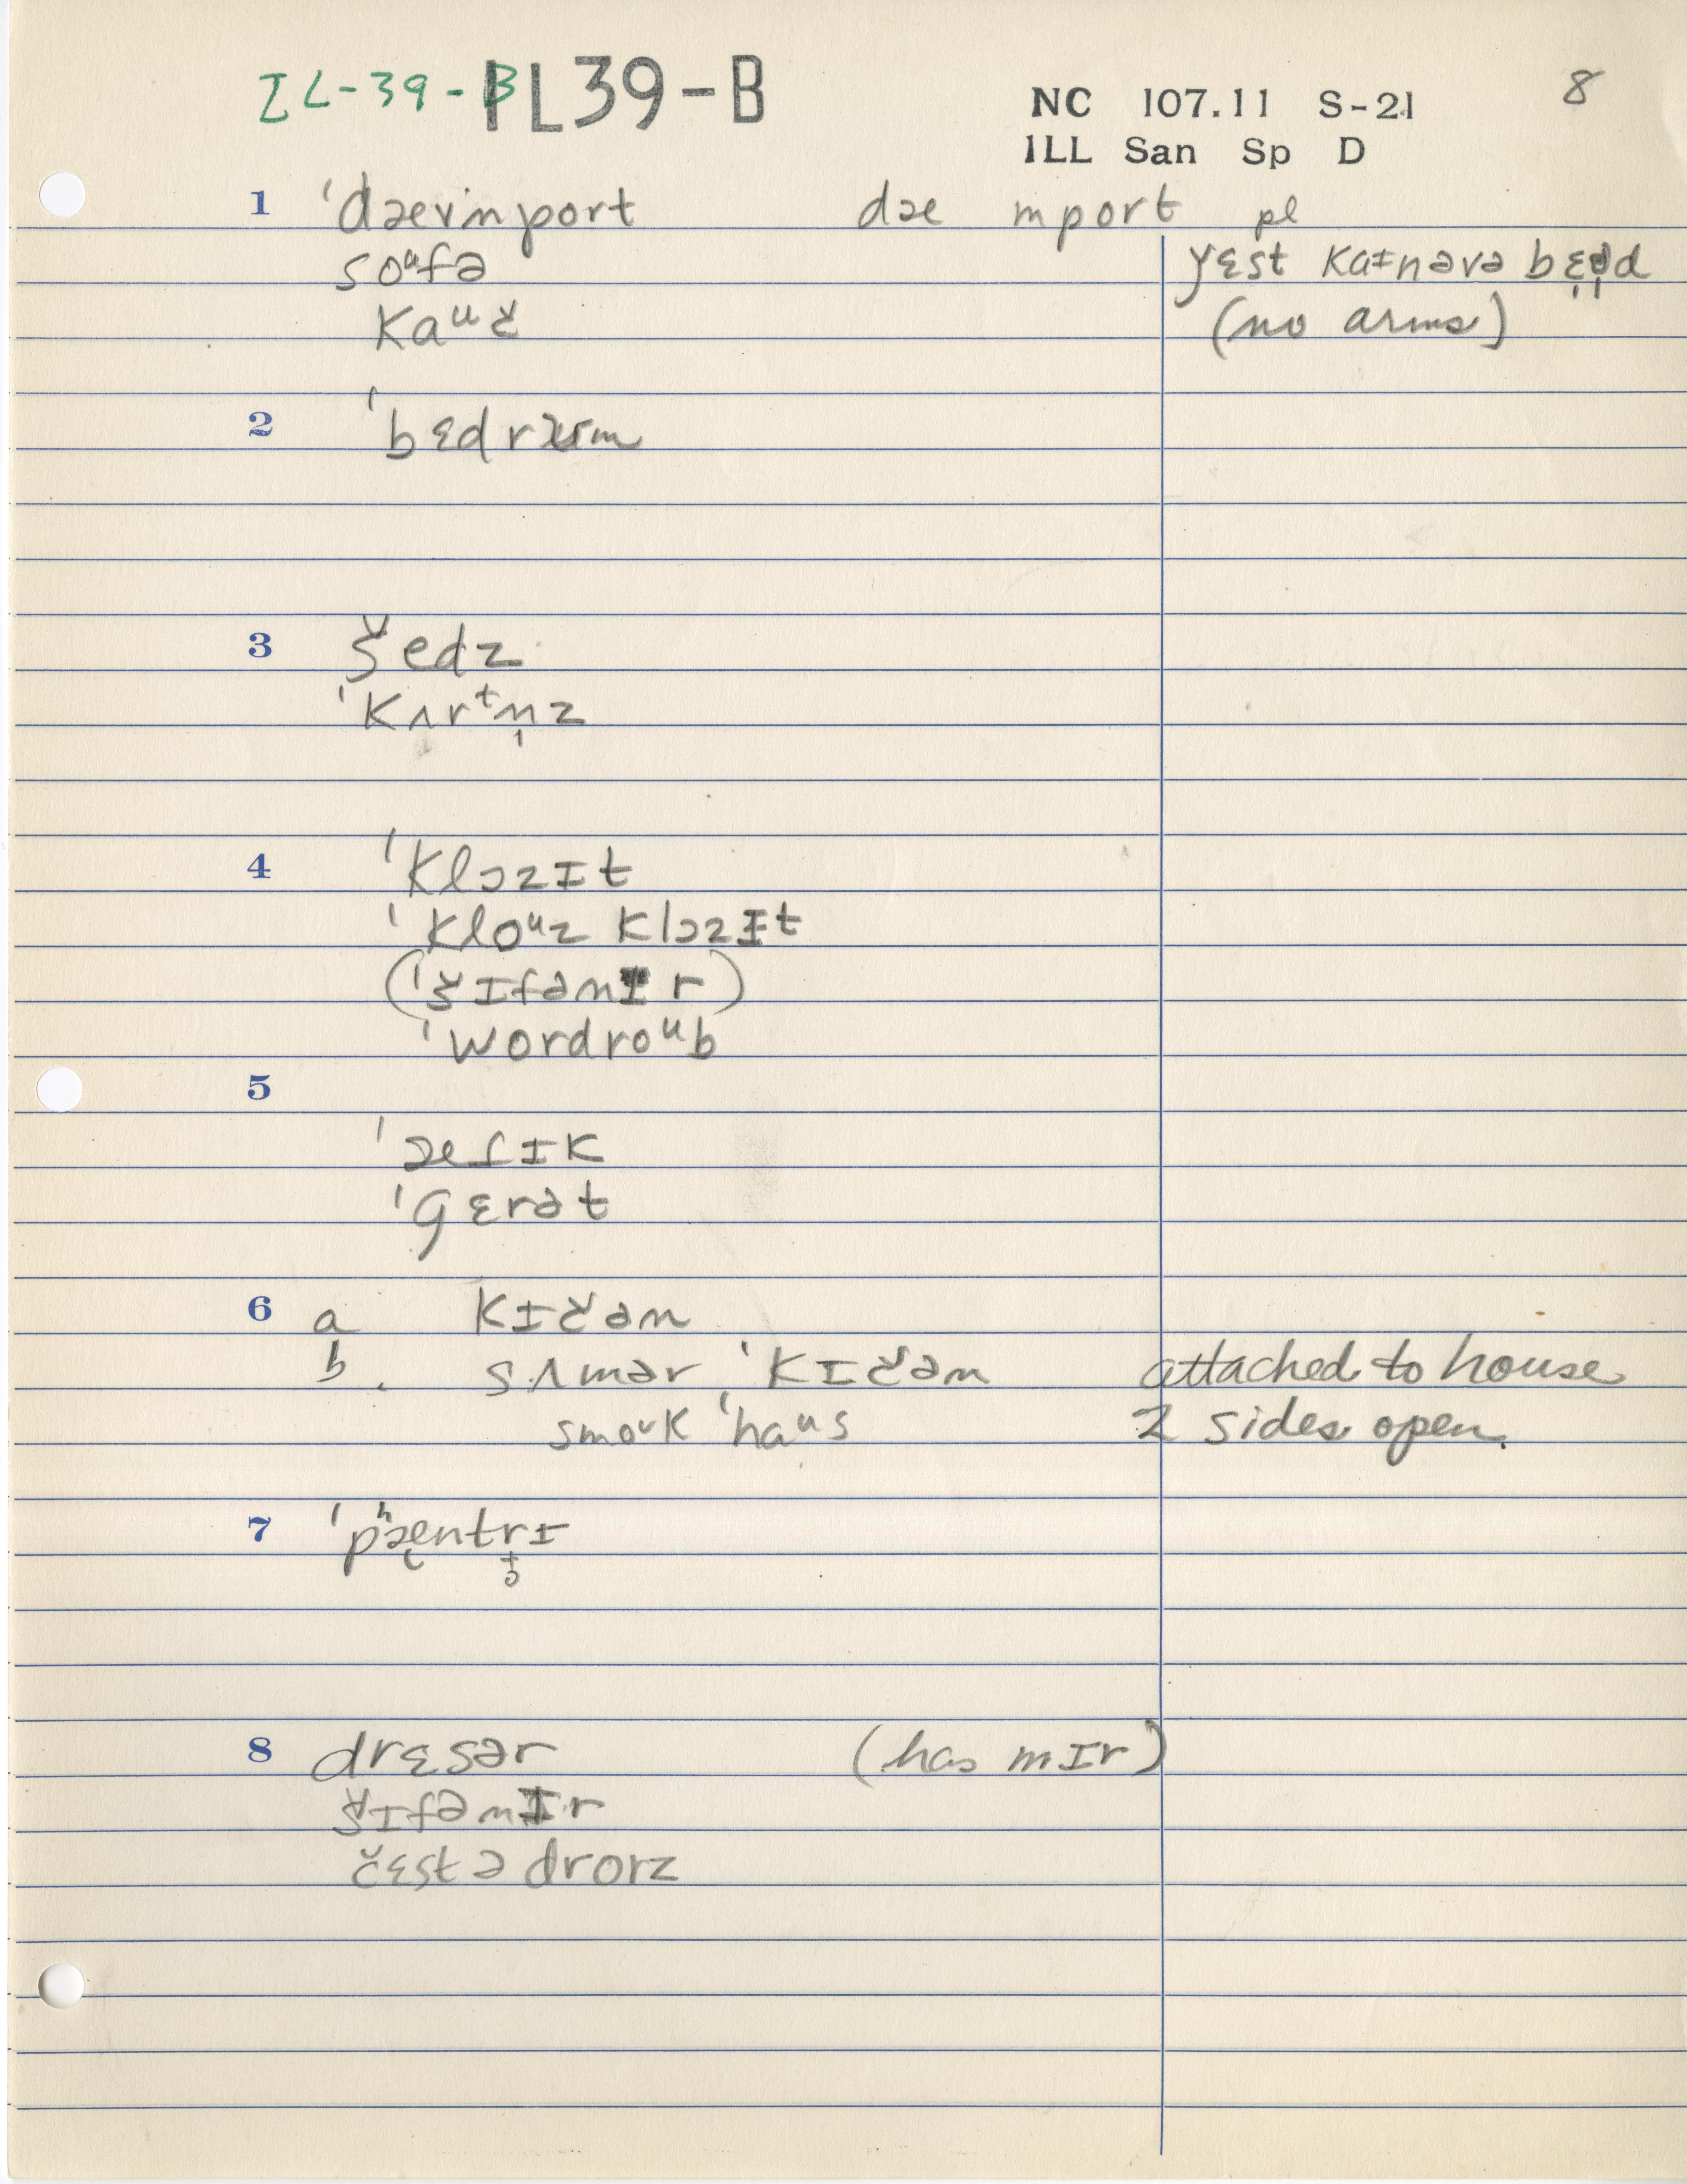 IL-39-B IL39-B NC 107.11 S-21 8
ILL San Sp D
1 ˈdævinport dæ mport pl
soᵘfə yɛst kaɪnəvə bɛ̩ə̩d
kaᵘč (no arms)
2 ˈbɛdrum
3 šedz
ˈkʌrᵗn̩z
4 ˈklɔzɪt
ˈkloᵘz klɔzɪt
(ˈšɪfənɪr)
ˈwordroᵘb
5
ˈæfɪk
ˈgɛrət
6 a kɪčən
b. sʌmər ˈkɪčən attached to house
smoᵘk ˈhaᵘs 2 sides open.
7 ˈpʰæntrɪ
8 drɛsər (has mɪr)
šɪfənɪr
čɛst ə drorz